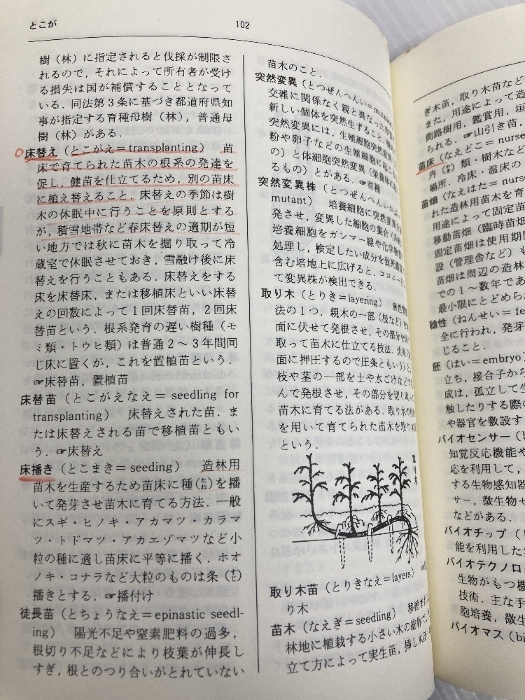 とこが
102
樹（林）に指定されると伐採が制限さ
れるので，それによって所有者が受け
る損失は国が補償することとなって
いる．同法第３条に基づき都道府県知
事が指定する育種母樹（林），普通母
樹（林）がある．
床替え（とこがえ＝transplanting） 苗
床で育てられた苗木の根系の発達を
促し，健苗を仕立てるため，別の苗床
に植え替えること．床替えの季節は樹
木の休眠中に行うことを原則とする
が，積雪地帯など春床替えの適期が短
い地方では秋に苗木を掘り取って冷
蔵室で休眠させておき，雪融け後に床
替えを行うこともある．床替えをする
床を床替床，または移植床といい床替
えの回数によって１回床替苗，２回床
替苗という．根系発育の遅い樹種（モ
ミ類・トウヒ類）は普通２～３年間同
じ床に置くが，これを置植苗という．
☞床替苗，置植苗
床替苗（とこがえなえ＝seedling for
transplanting） 床替えされた苗．ま
たは床替えされる苗で移植苗ともい
う．☞床替え
床播き（とこまき＝seeding） 造林用
苗木を生産するため苗床に種（たね）を播
いて発芽させ苗木に育てる方法．一般
にスギ・ヒノキ・アカマツ・カラマ
ツ・トドマツ・アカエゾマツなど小
粒の種に適し苗床に平等に播く．ホオ
ノキ・コナラなど大粒のものは条（すじ）
播きとする．☞播付け
徒長苗（とちょうなえ＝epinastic seedl-
ing） 陽光不足や窒素肥料の過多，
根切り不足などにより枝葉が伸長し
すぎ，根とのつり合いがとれていない
苗木のこと．
突然変異（とつぜんへんい＝
交雑に関係なく親と異なった
新しい個体を突然生ずること
突然変異には，生殖細胞突然変
粉や卵子などの生殖細胞に
の）と体細胞突然変異（栄養体に
るもの）とがある．☞育種
突然変異株（とつぜんへんい
mutant） 培養細胞に突然変異
発させ，変異した細胞の集合
培養細胞をガンマー線や化学
処理し，検定したい成分を
含む培地上に広げると，
て変異株が検出できる．
取り木（とりき＝layering）
法の１つ．親木の一部（枝など）
面に伏せて発根させ，その部分
取って苗木に仕立てる技法．
面に押圧するので圧条ともいう
枝や茎の一部を土や水ごけなど
んで発根させ，その部分を
苗木に育てる法がある．取り木
を用いて育てられた苗木を
という．
取り木苗（とりきなえ＝layers）
り木
苗木（なえぎ＝seedling）
林地に植栽する小さい木の総称
立て方によって実生苗，挿し木
ぎ木苗，取り木苗など
また，用途によって造
街路樹用，鑑賞用，
る．☞山引き苗，
苗床（なえどこ＝nurse
卉（き）類・樹木など
場所．冷床・温床の
苗畑（なえはた＝nurs
れた造林用苗木を育
用途によって固定苗
移動苗畑（臨時苗畑
固定苗畑は使用期間
設（管理舎など）も
苗畑は周辺の造林
での１～数年であ
最小限にとどめら
稔性（ねんせい＝fe
全に行われ，発芽
じること．
胚（はい＝embryo）
立ち，接合子から
成は，孤立して
触したりする際の
や器官を数設す
バイオセンサー（
知覚反応機能や
応を利用して，
する生物感知器
サー，微生物セ
などがある．
バイオチップ（
能を利用した
バイオテクノロ
生物がもつ機
技術．主な手
胞培養，微生
バイオマス（bi